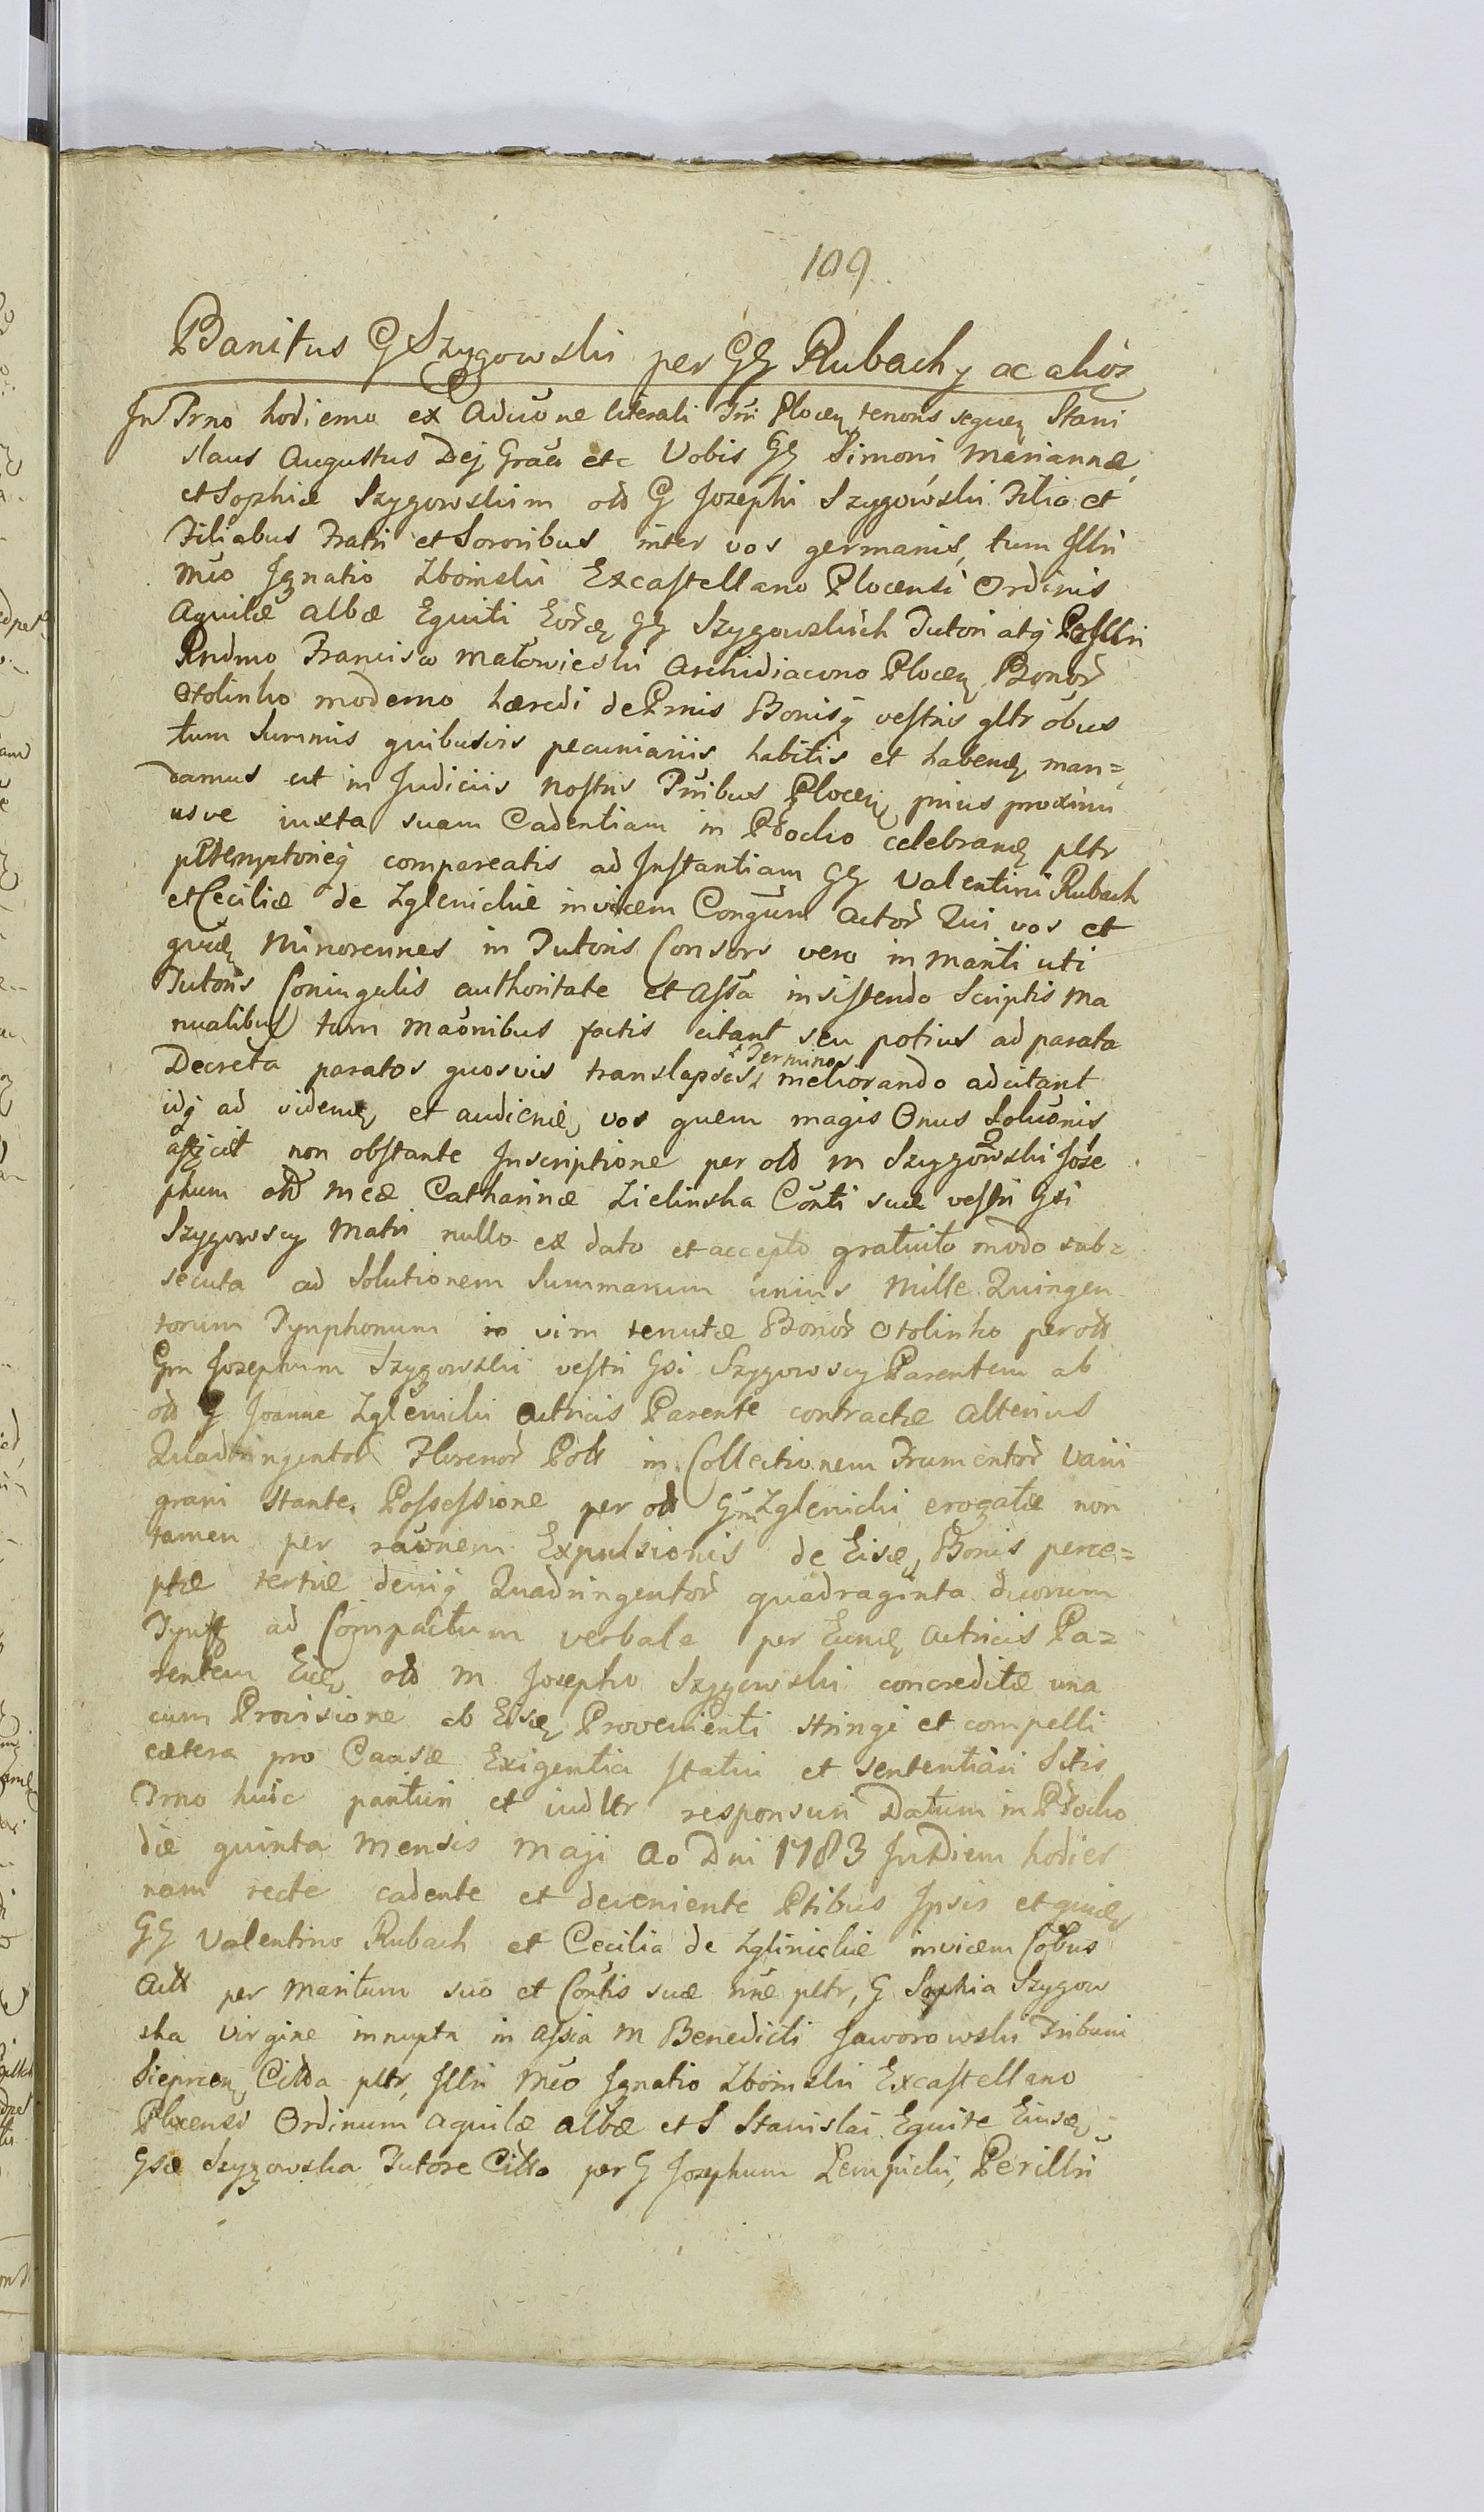 109
Banitus G Szygowski per GG Rubach y ac alios
In Trno hodierno ex Aduone literali Trii Plocen tenoris sequen Stani
slaus Augustus Dej Graa etc Vobis GG Simoni Mariannæ
et Sophiæ Szygowskim olb G Josephi Szygowski Filio et
Filiabus Fratri et Sororibus inter vos germanis, tum Illri
Mco Ignatio Zboinski Excastellano Plocensi Ordinis
Aquilæ albæ Equiti Eord GG Szygowskich Tutori atq PerIllri
Rndmo Francisco Małowieski Archidiacono Plocen Bonor
Otolinko moderno hæredi de Prmis Bonisq vestris gltr obus
tum Summis quibusvis pecuniariis habitis et habend man=
damus ut in Judiciis Nostris Triibus Plocen prius proximi
usve iuxta suam Cadentiam in Płocko celebrand pltr
ptremptorieq compareatis ad Instantiam GG Valentini Rubach
et Ceciliæ de Zglenickie invicem Congum Actor Qui vos et
quid Minorennes in Tutoris Consors vero in Mariti uti
Tutoris Coniugalis authoritate et Assa insistendo Scriptis Ma
nualibus tum Maonibus factis citant seu potius ad parata
Decreta paratos quosvis translapsos Terminos meliorando adcitant
idq ad vidend et audiend vos quem magis Onus Soluonis
afficit non obstante Inscriptione per olb M Szygowski Jose
phum olb Mcæ Catharinæ Zielinska Conti suæ vestri Gsi
Szygowscy Matri nullo ex dato et accepto gratuito modo sub=
secuta ad Solutionem Summarum unius Mille Quingen
torum Tynphonum in vim tenutæ Bonor Otolinko per olb
Gm Josephum Szygowski vestri Gsi Szygowscy Parentem ab
olb G Joanne Zglenicki Actricis Parente contractæ alterius
Quadringentor Florenor Poll in Collectionem Frumentor Varii
grani stante Possessione per olb Gm Zglenicki erogatæ non
tamen per raonem Expulsionis de Eisd Bonis perce=
ptæ tertiæ deniq Quadringentor quadraginta duorum
Tynff ad Compactum verbale per Eund Actricis Pa=
rentem Eid olb M Josepho Szygowski concreditæ una
cum Provisione ab Eisd Provenienti stringi et compelli
cætera pro Causæ Exigentia statui et sententiari Sitis
Trno huic parituri et iudltr responsuri Datum in Płocko
die quinta Mensis Maji Ao Dni 1783 In Diem hodier
nam recte cadente et deveniente Ptibus Ipsis et quid
GG Valentino Rubach et Cecilia de Zglinickie invicem Cobus
Actt per Maritum suo et Contis suæ nne pltr, G Sophia Szygow
ska Virgine innupta in Assia M Benedicti Jaworowski Tribuni
Sieprcen Citta pltr, Illri Mco Ignatio Zboinski Excastellano
Plocensi Ordinum Aquilæ albæ et S Stanislai Equite Eiusd
Gsæ Szygowska Tutore Citto per G Josephum Lempicki, Perillri